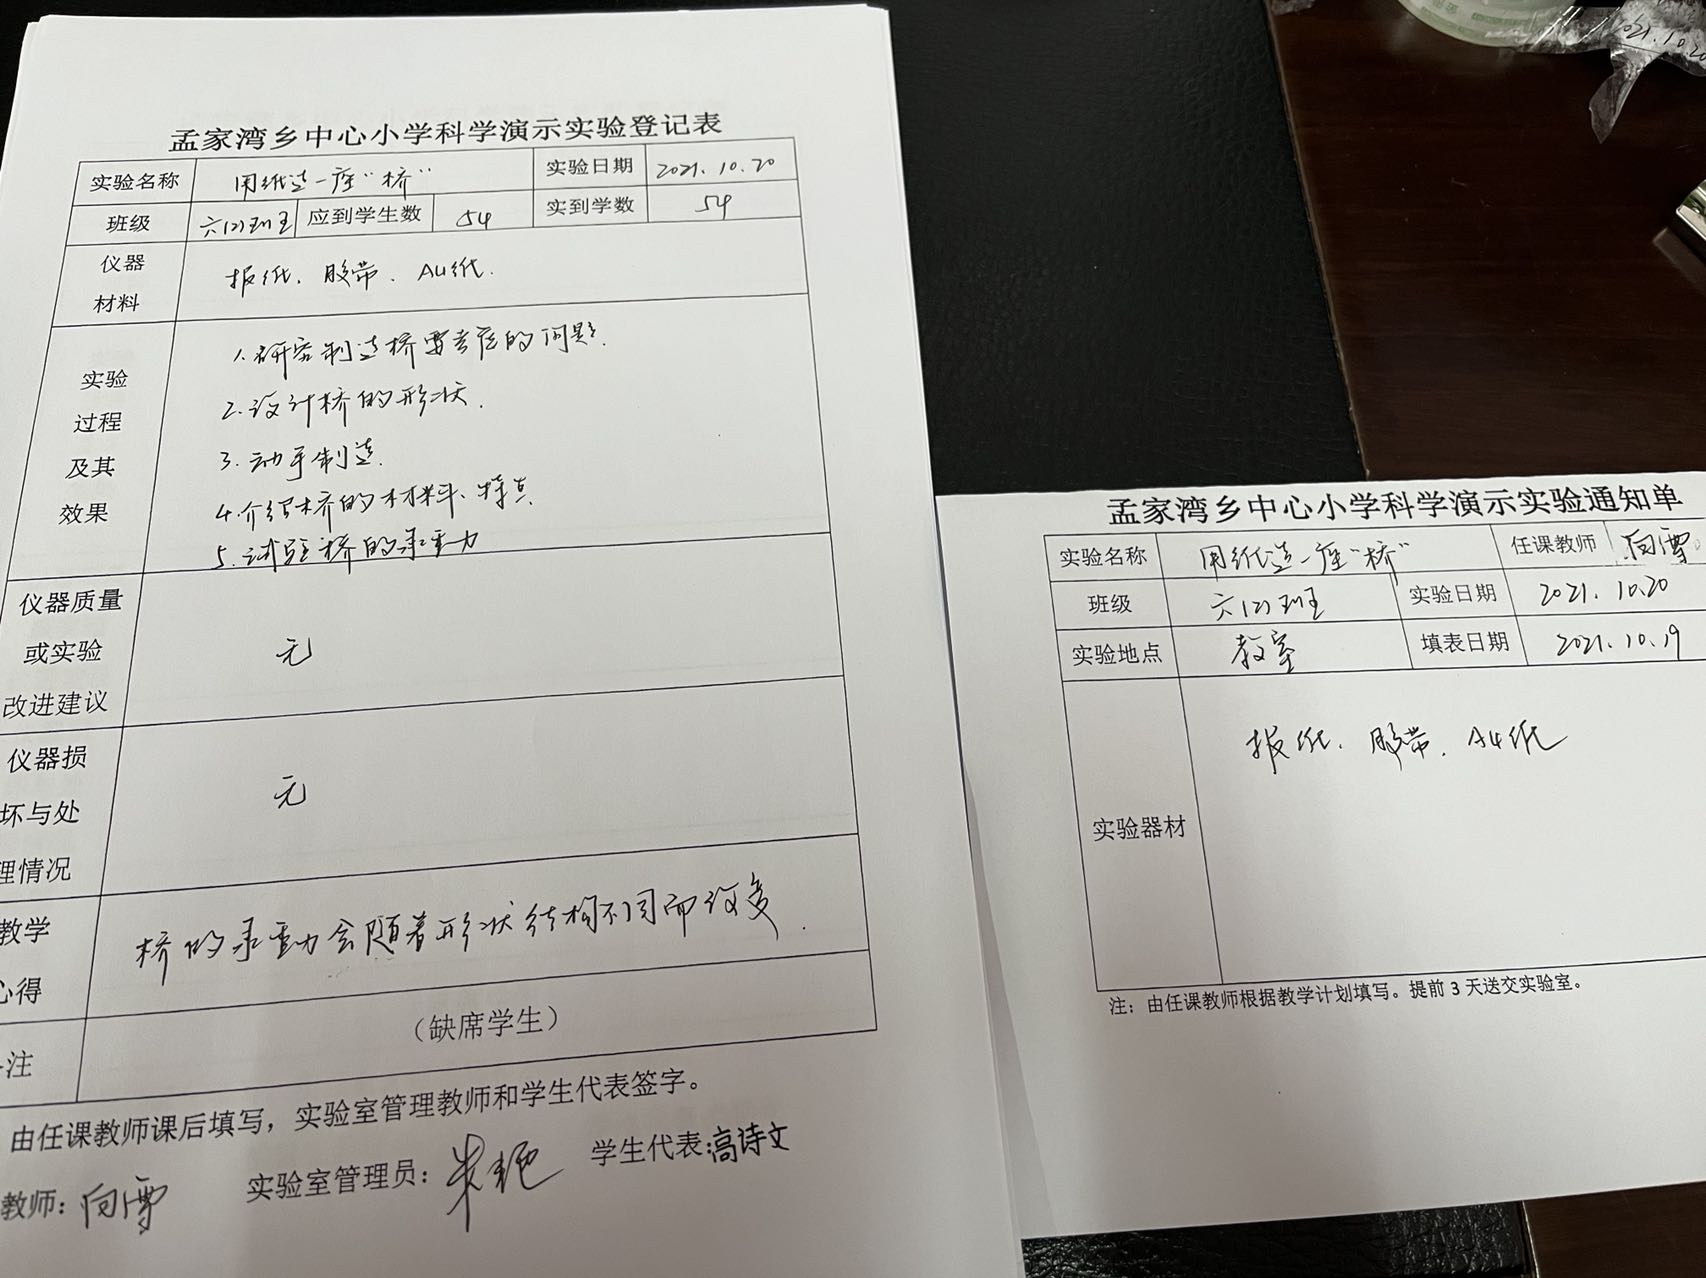 孟家湾乡中心小学科学演示实验登记表
实验名称 用纸造一座“桥” 实验日期 2021.10.20
班级 六(2)班 应到学生数 54 实到学数 54
仪器
材料
报纸、胶带、A4纸.
实验
过程
及其
效果
1.研究制造桥要考虑的问题.
2.设计桥的形状.
3.动手制造.
4.介绍桥的材料、特点
5.试验桥的承重力
仪器质量
或实验
改进建议
无
仪器损
坏与处
理情况
无
教学
心得
桥的承重力会随着形状结构不同而改变.
注
（缺席学生）
由任课教师课后填写，实验室管理教师和学生代表签字。
教师: 向雪 实验室管理员: 学生代表:高诗文
孟家湾乡中心小学科学演示实验通知单
实验名称 用纸造一座“桥” 任课教师 向雪
班级 六(2)班 实验日期 2021.10.20
实验地点 教室 填表日期 2021.10.19
实验器材
报纸、胶带、A4纸
注：由任课教师根据教学计划填写。提前 3 天送交实验室。
2021.10.20